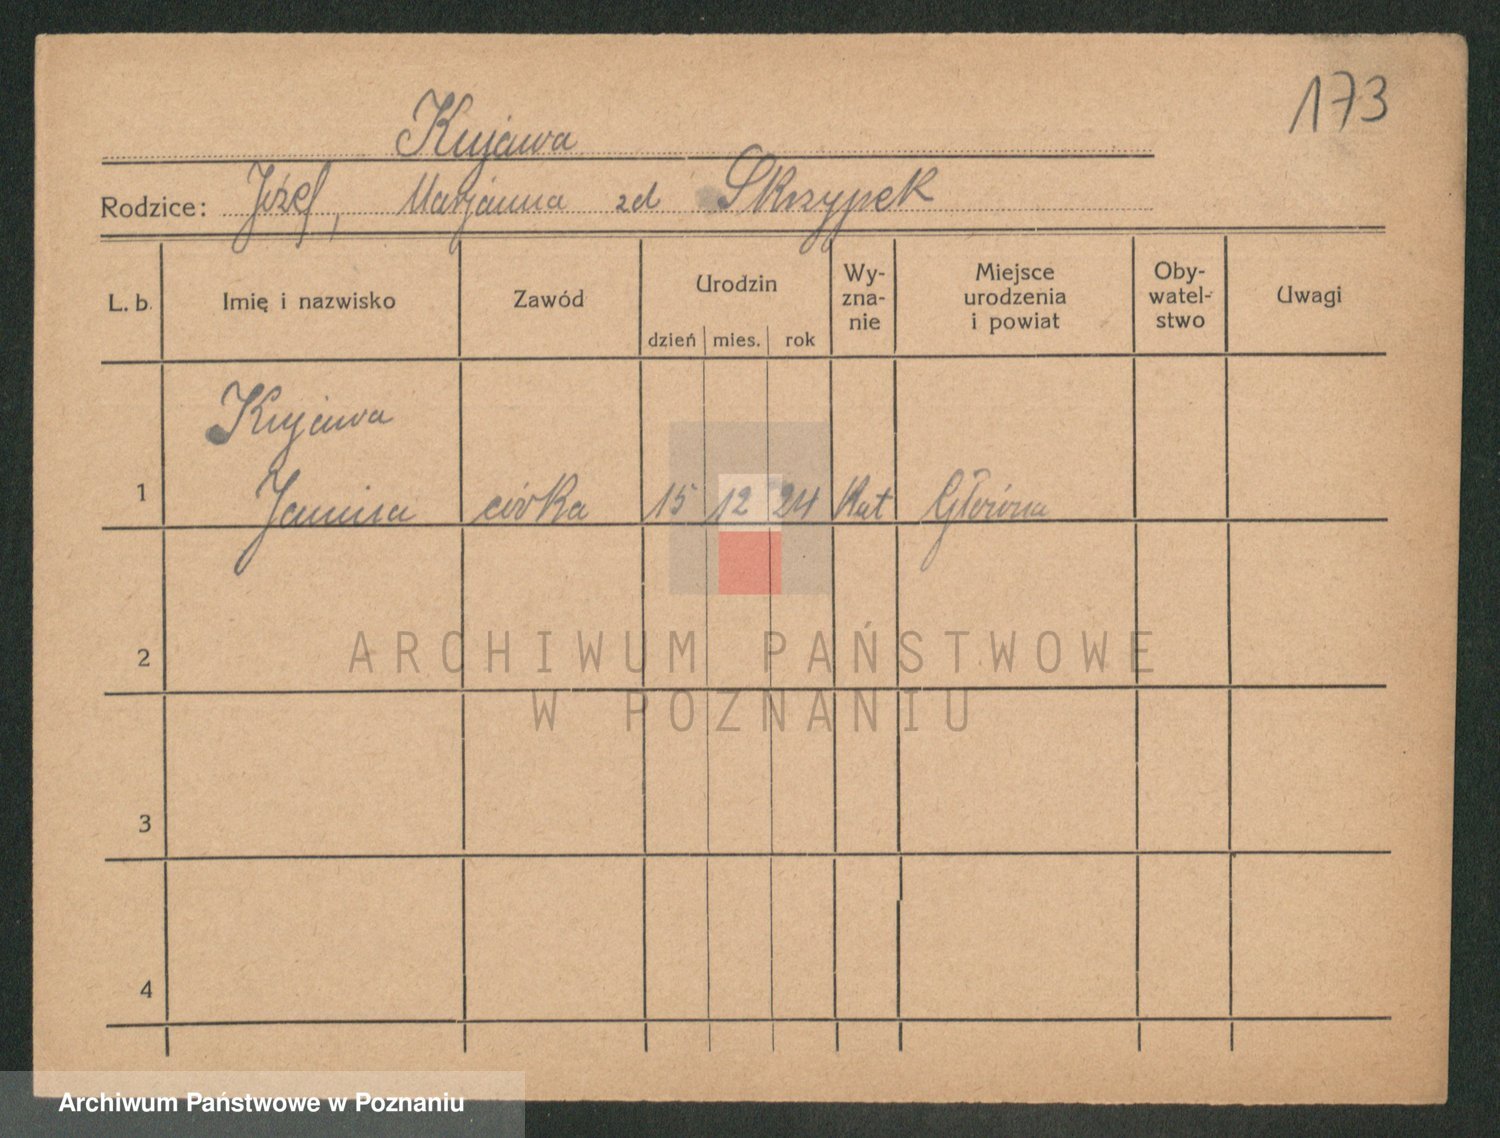 173
Kujawa
Rodzice: Józef, Marjanna zd Skrzypek
L. b. Imię i nazwisko Zawód Urodzin dzień mies. rok Wy-zna-nie Miejsce urodzenia i powiat Oby-watel-stwo Uwagi
Kujawa
1 Janina córka 15 12 24 Kat Główna
2
3
4
ARCHIWUM PAŃSTWOWE
W POZNANIU
Archiwum Państwowe w Poznaniu